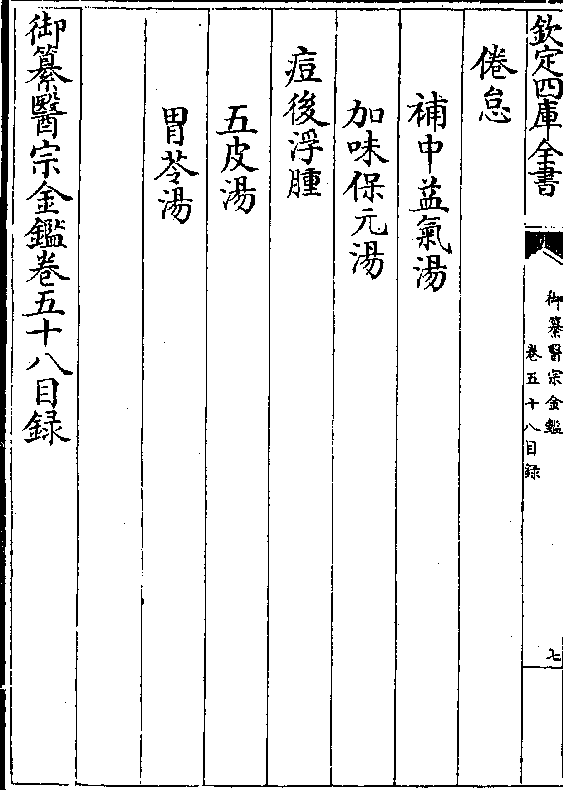 欽定四庫全書
御纂醫宗金鑑
卷五十八目録
七
倦怠
補中益氣湯
加味保元湯
痘後浮腫
五皮湯
胃苓湯
御纂醫宗金鑑卷五十八目録